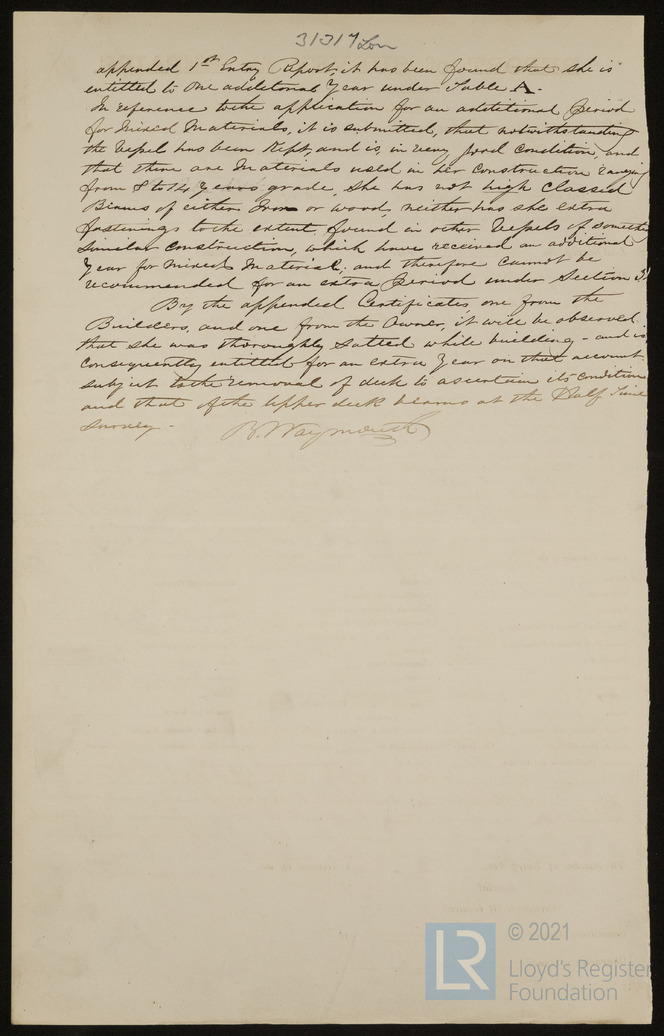 31317 Lon
appended 1st Entry Report, it has been found that she is
entitled to one additional Year under Table A.
In reference to the application for an additional Period
for Mixed Materials, it is submitted, that notwithstanding
the Vessel has been kept, and is, in very good Condition, and
that there are Materials used in her Construction varying
from 8 to 14 Years grade, she has not high Classed
Beams of either Iron or wood, neither has she extra
fastenings to the extent, found in other Vessels of somewhat
similar Construction, which have received an additional
Year for mixed Material; and therefore cannot be
recommended for an extra Period under Section 3
By the appended Certificates, one from the
Builders, and one from the Owner, it will be observed
that she was thoroughly Salted while building - and is
consequently entitled for an extra Year on that account
subject to the removal of deck to ascertain its condition
and that of the Upper deck beams at the Half Time
survey -
B. Waymouth
© 2021
LR
Lloyd's Register
Foundation